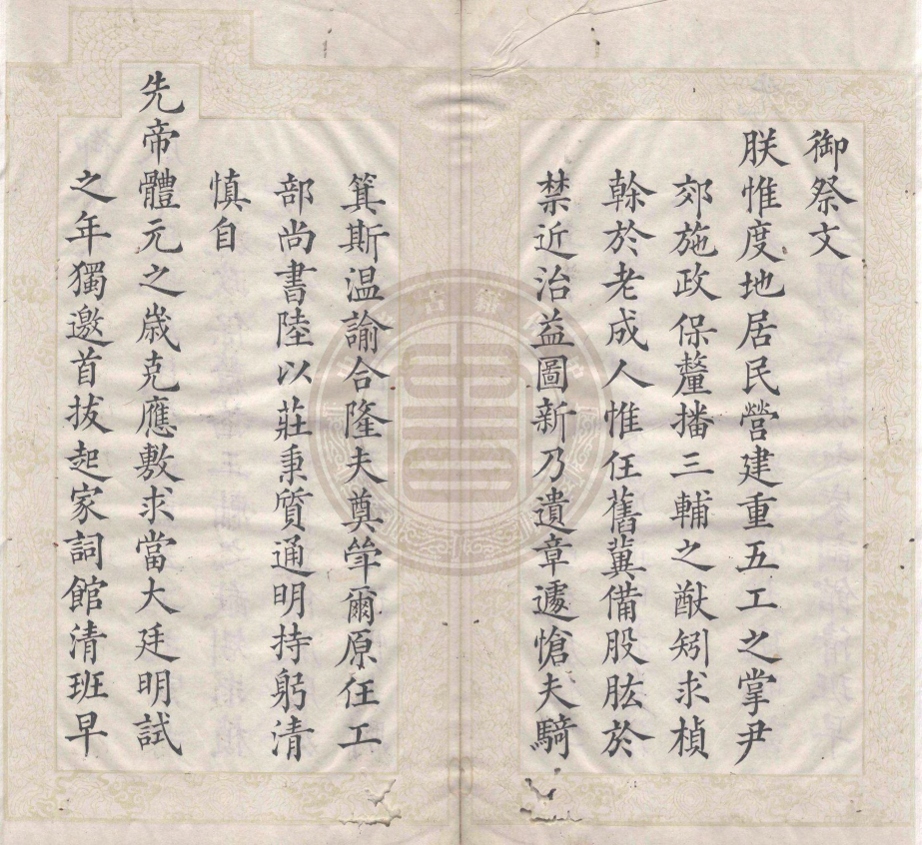 御祭文
朕惟度地居民營建重五工之掌尹
郊施政保釐播三輔之猷矧求楨
榦於老成人惟任舊冀備股肱於
禁近治益圖新乃遺章遽愴夫騎
箕斯温諭合隆夫奠斝爾原任工
部尚書陸以莊秉質通明持躬清
慎自
先帝體元之嵗克應敷求當大廷明試
之年獨邀首拔起家詞館清班早